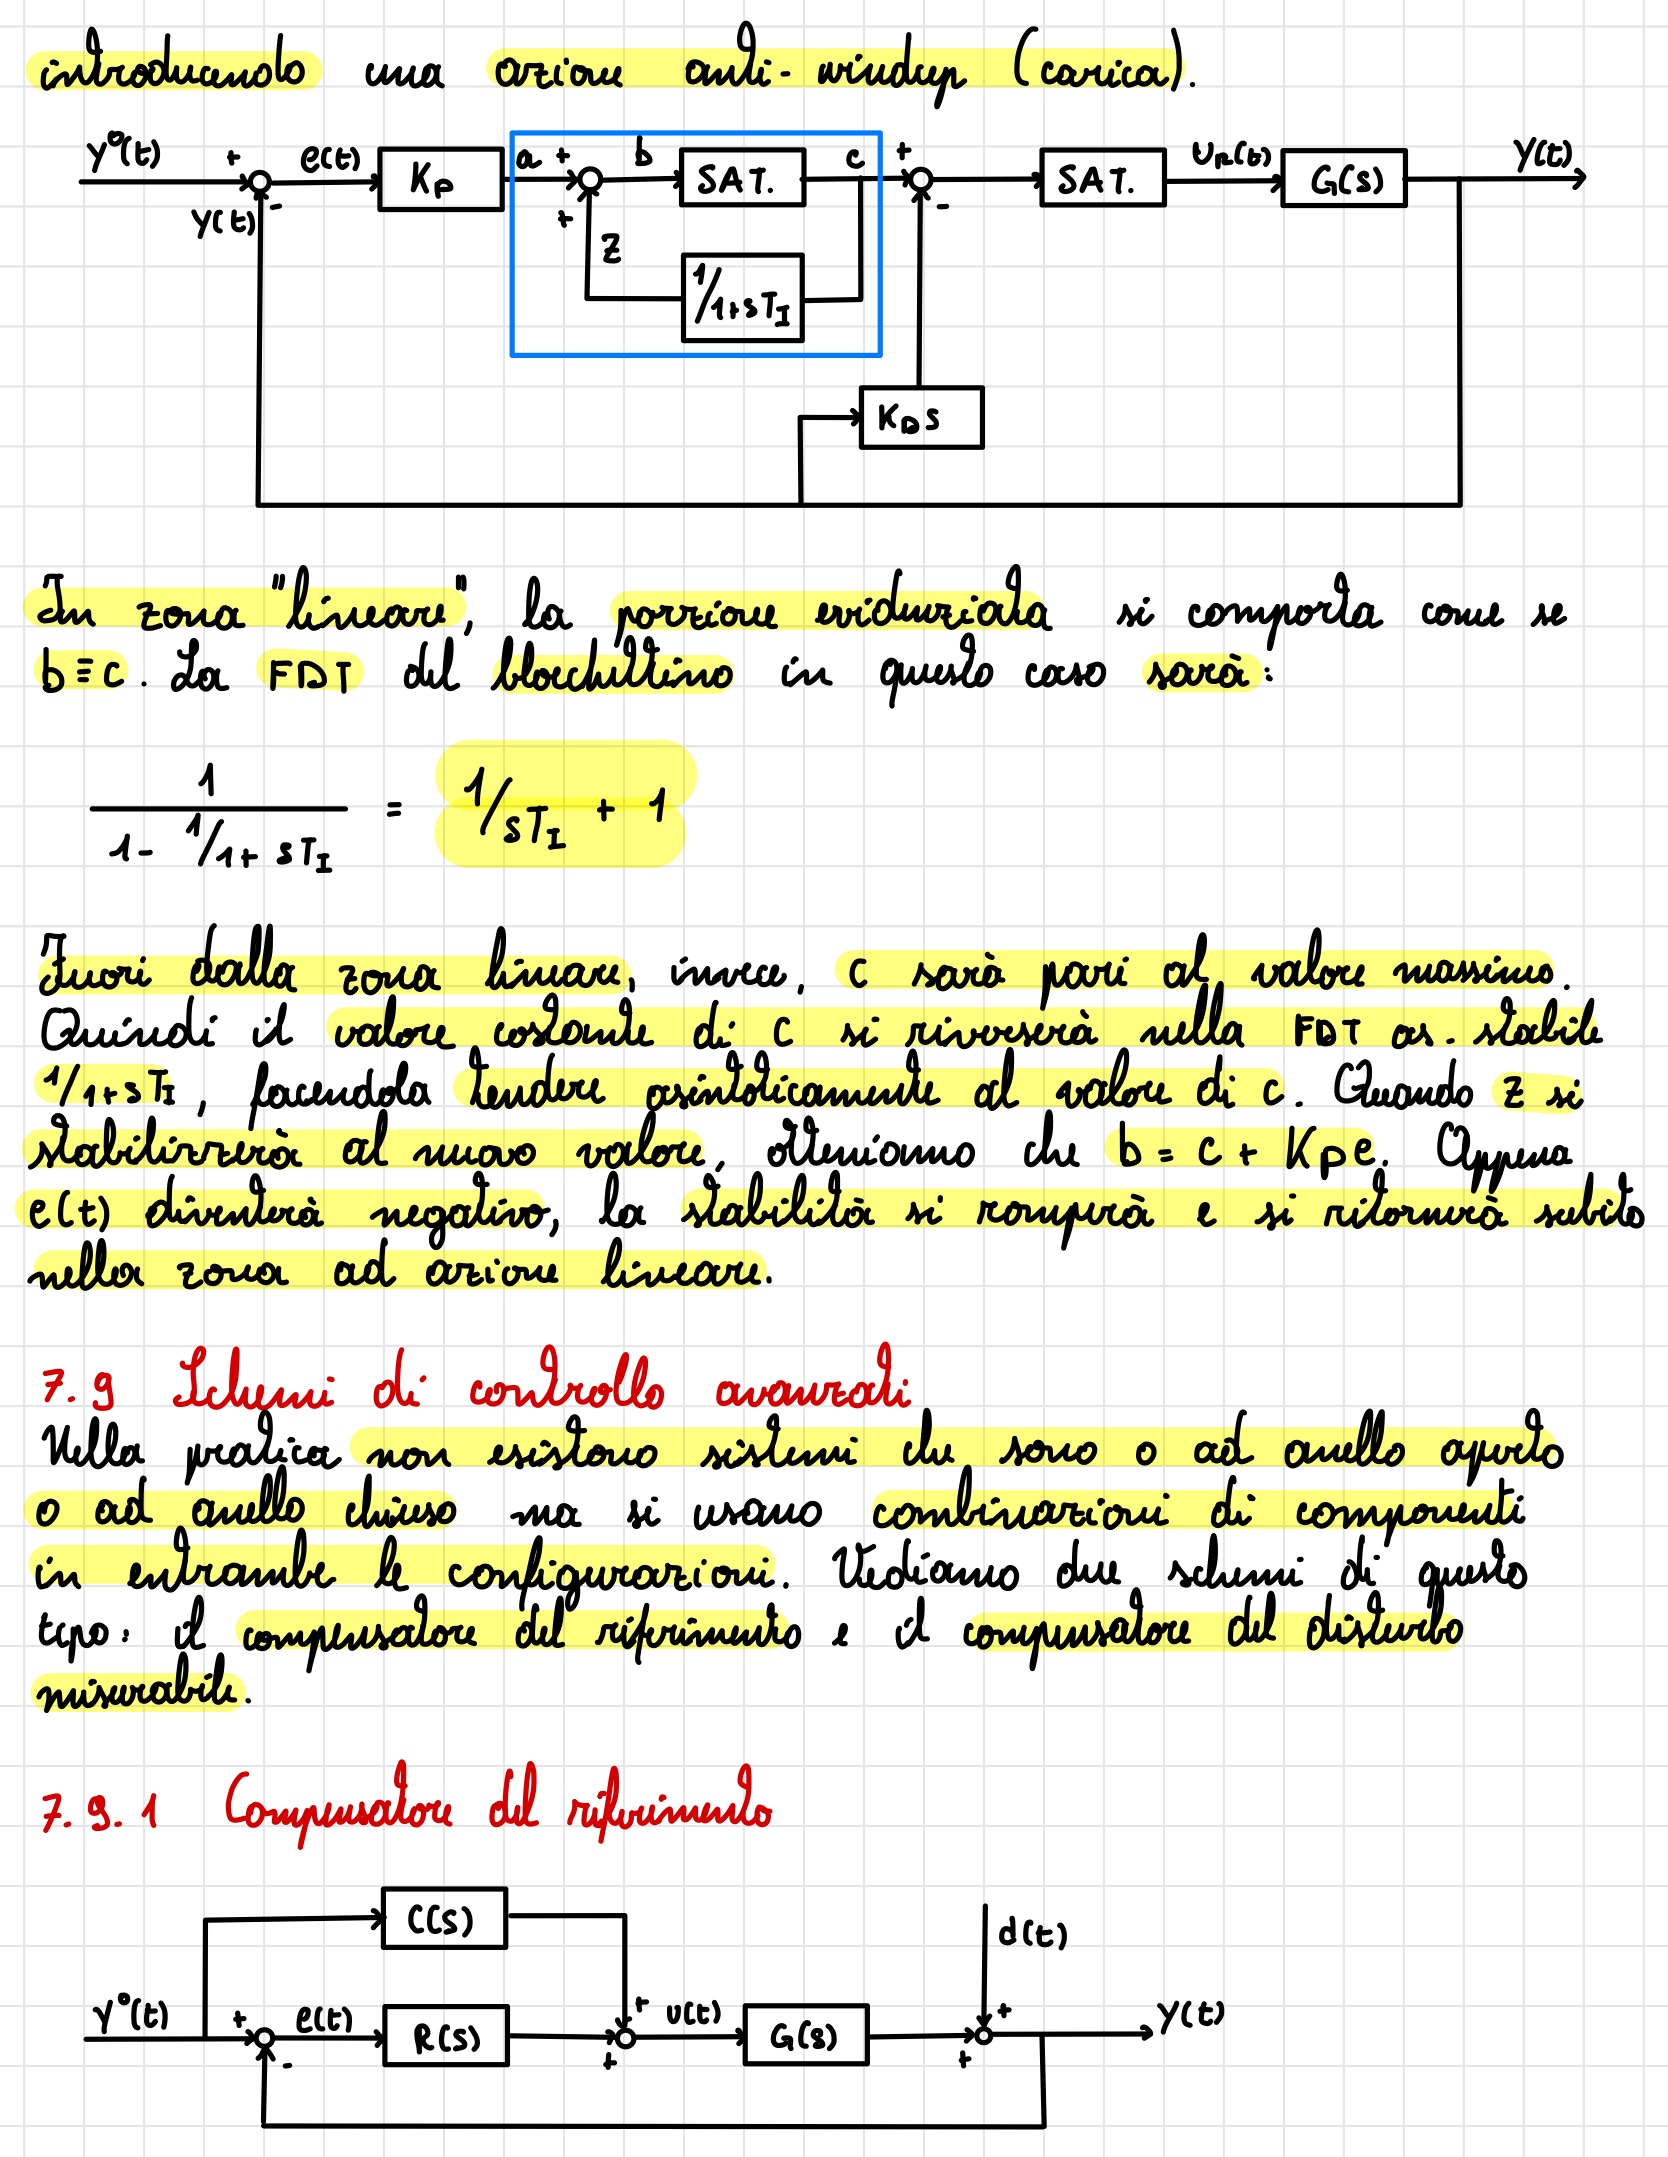 introducendo una azione anti-windup (carica).
y°(t) + e(t) Kp a + b SAT. c + SAT. UR(t) G(s) y(t)
y(t) - + z -
1/1+sTI
KDS
In zona "lineare", la porzione evidenziata si comporta come se
b≡c. La FDT del blocchettino in questo caso sarà:
1
= 1/sTI + 1
1- 1/1+sTI
Fuori dalla zona lineare, invece, c sarà pari al valore massimo.
Quindi il valore costante di c si riverserà nella FDT as. stabile
1/1+sTI, facendola tendere asintoticamente al valore di c. Quando z si
stabilizzerà al nuovo valore, otteniamo che b = c + Kpe. Appena
e(t) diventerà negativo, la stabilità si romperà e si ritornerà subito
nella zona ad azione lineare.
7.9 Schemi di controllo avanzati
Nella pratica non esistono sistemi che sono o ad anello aperto
o ad anello chiuso ma si usano combinazioni di componenti
in entrambe le configurazioni. Vediamo due schemi di questo
tipo: il compensatore del riferimento e il compensatore del disturbo
misurabile.
7.9.1 Compensatore del riferimento
C(s) d(t)
y°(t) + e(t) R(s) + u(t) G(s) + y(t)
- + +